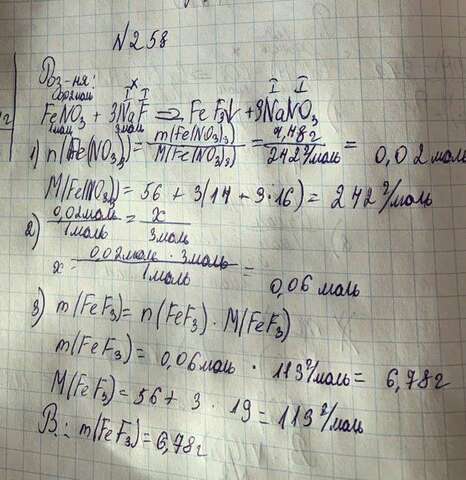 N258
Рз-ня:
0,02моль x I I I I
FeNO3 + 3NaF => FeF3↓ + 3NaNO3
1моль 3моль
1) n(Fe(NO3)3) = m(Fe(NO3)3) / M(Fe(NO3)3) = 4,48г / 242г/моль = 0,02моль
M(Fe(NO3)3) = 56 + 3(14 + 3·16) = 242г/моль
2) 0,02моль / 1моль = x / 3моль
x = 0,02моль · 3моль / 1моль = 0,06моль
3) m(FeF3) = n(FeF3) · M(FeF3)
m(FeF3) = 0,06моль · 113г/моль = 6,78г
M(FeF3) = 56 + 3 · 19 = 113г/моль
В: m(FeF3) = 6,78г